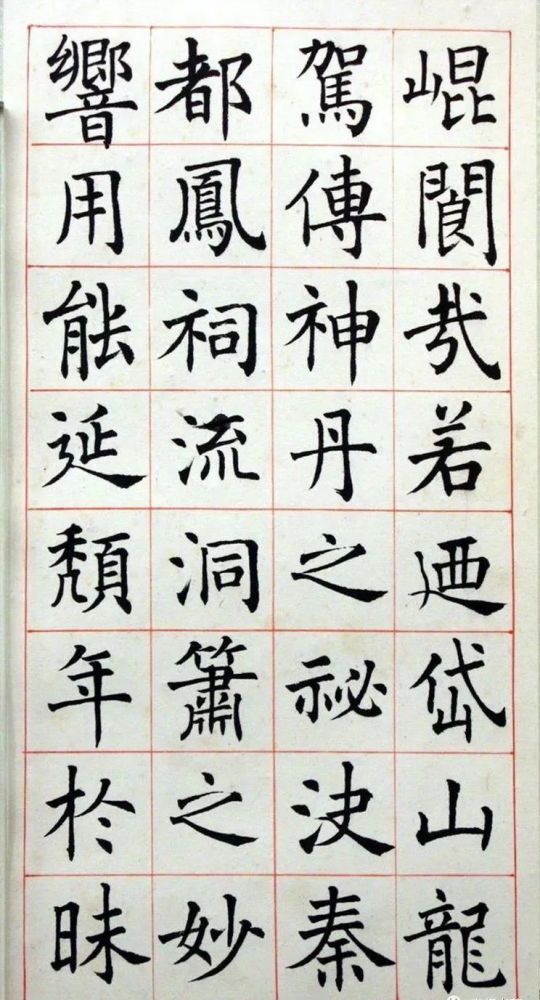 崐閬哉若廼岱山龍
駕傳神丹之祕決秦
都鳳祠流洞簫之妙
響用能延頹年於昧